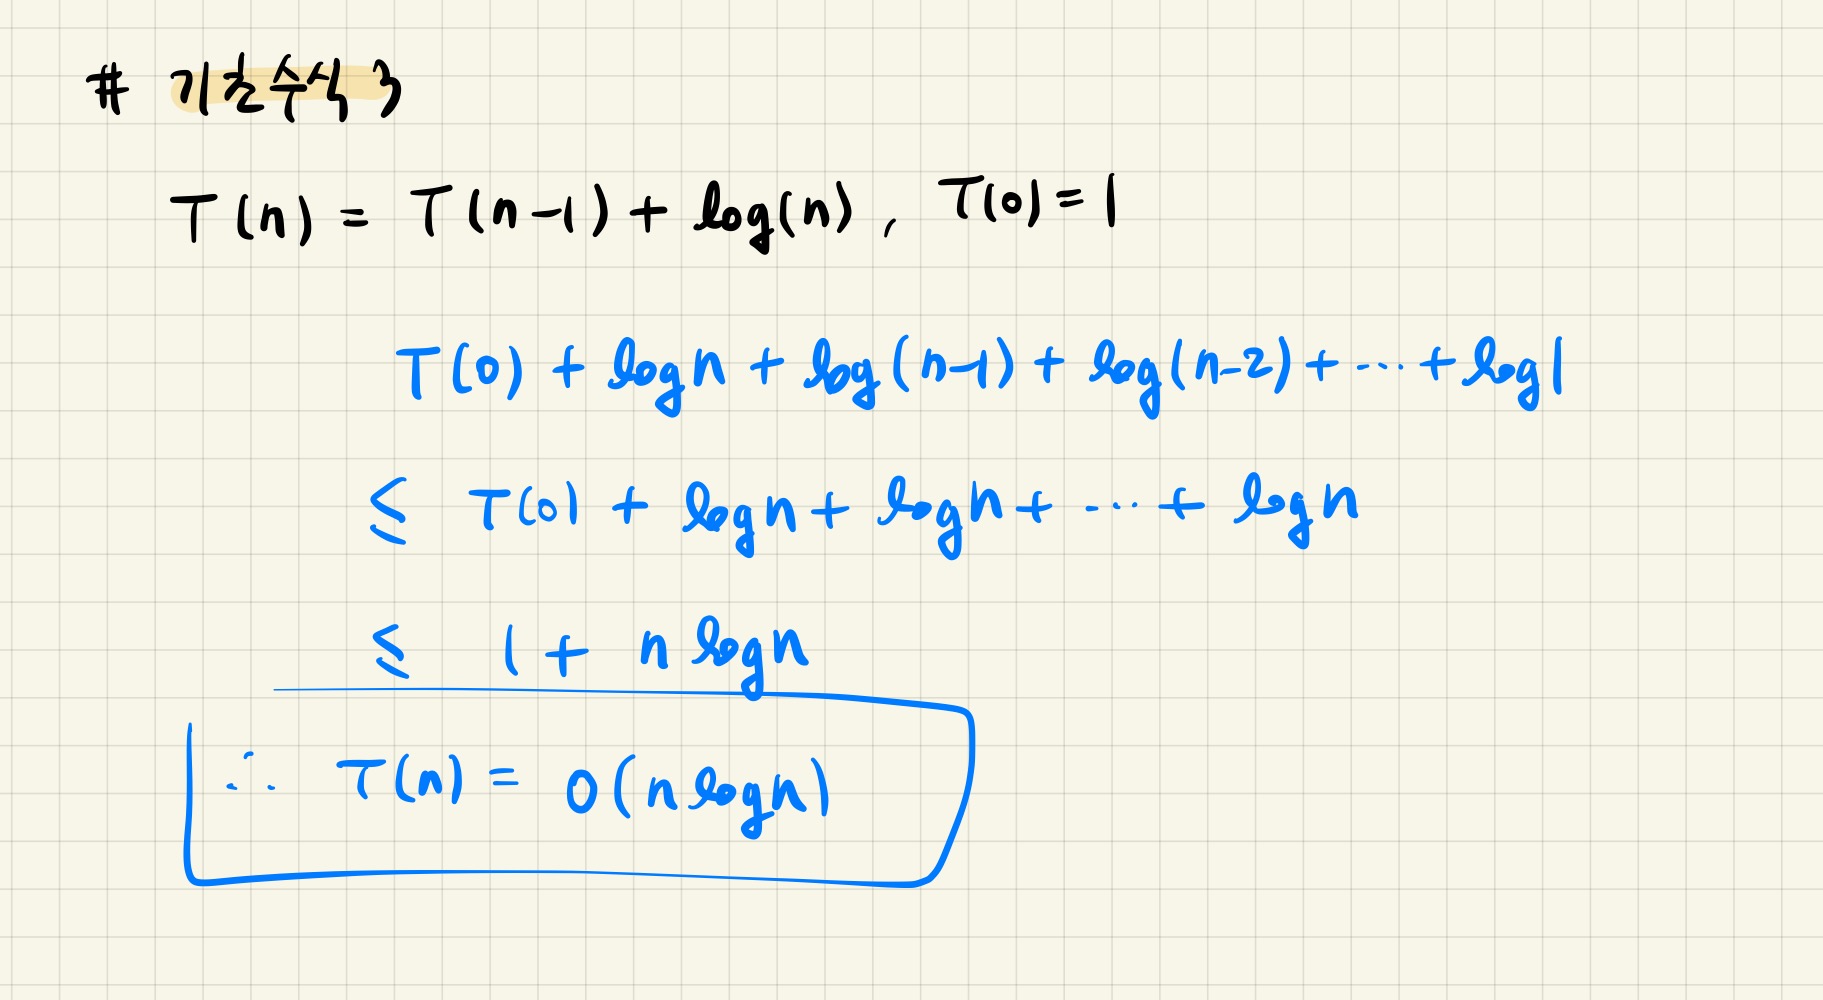 # 기초수식 3
T(n) = T(n-1) + log(n), T(0) = 1
T(0) + logn + log(n-1) + log(n-2) + ... + log1
≤ T(0) + logn + logn + ... + logn
≤ 1 + nlogn
∴ T(n) = O(nlogn)